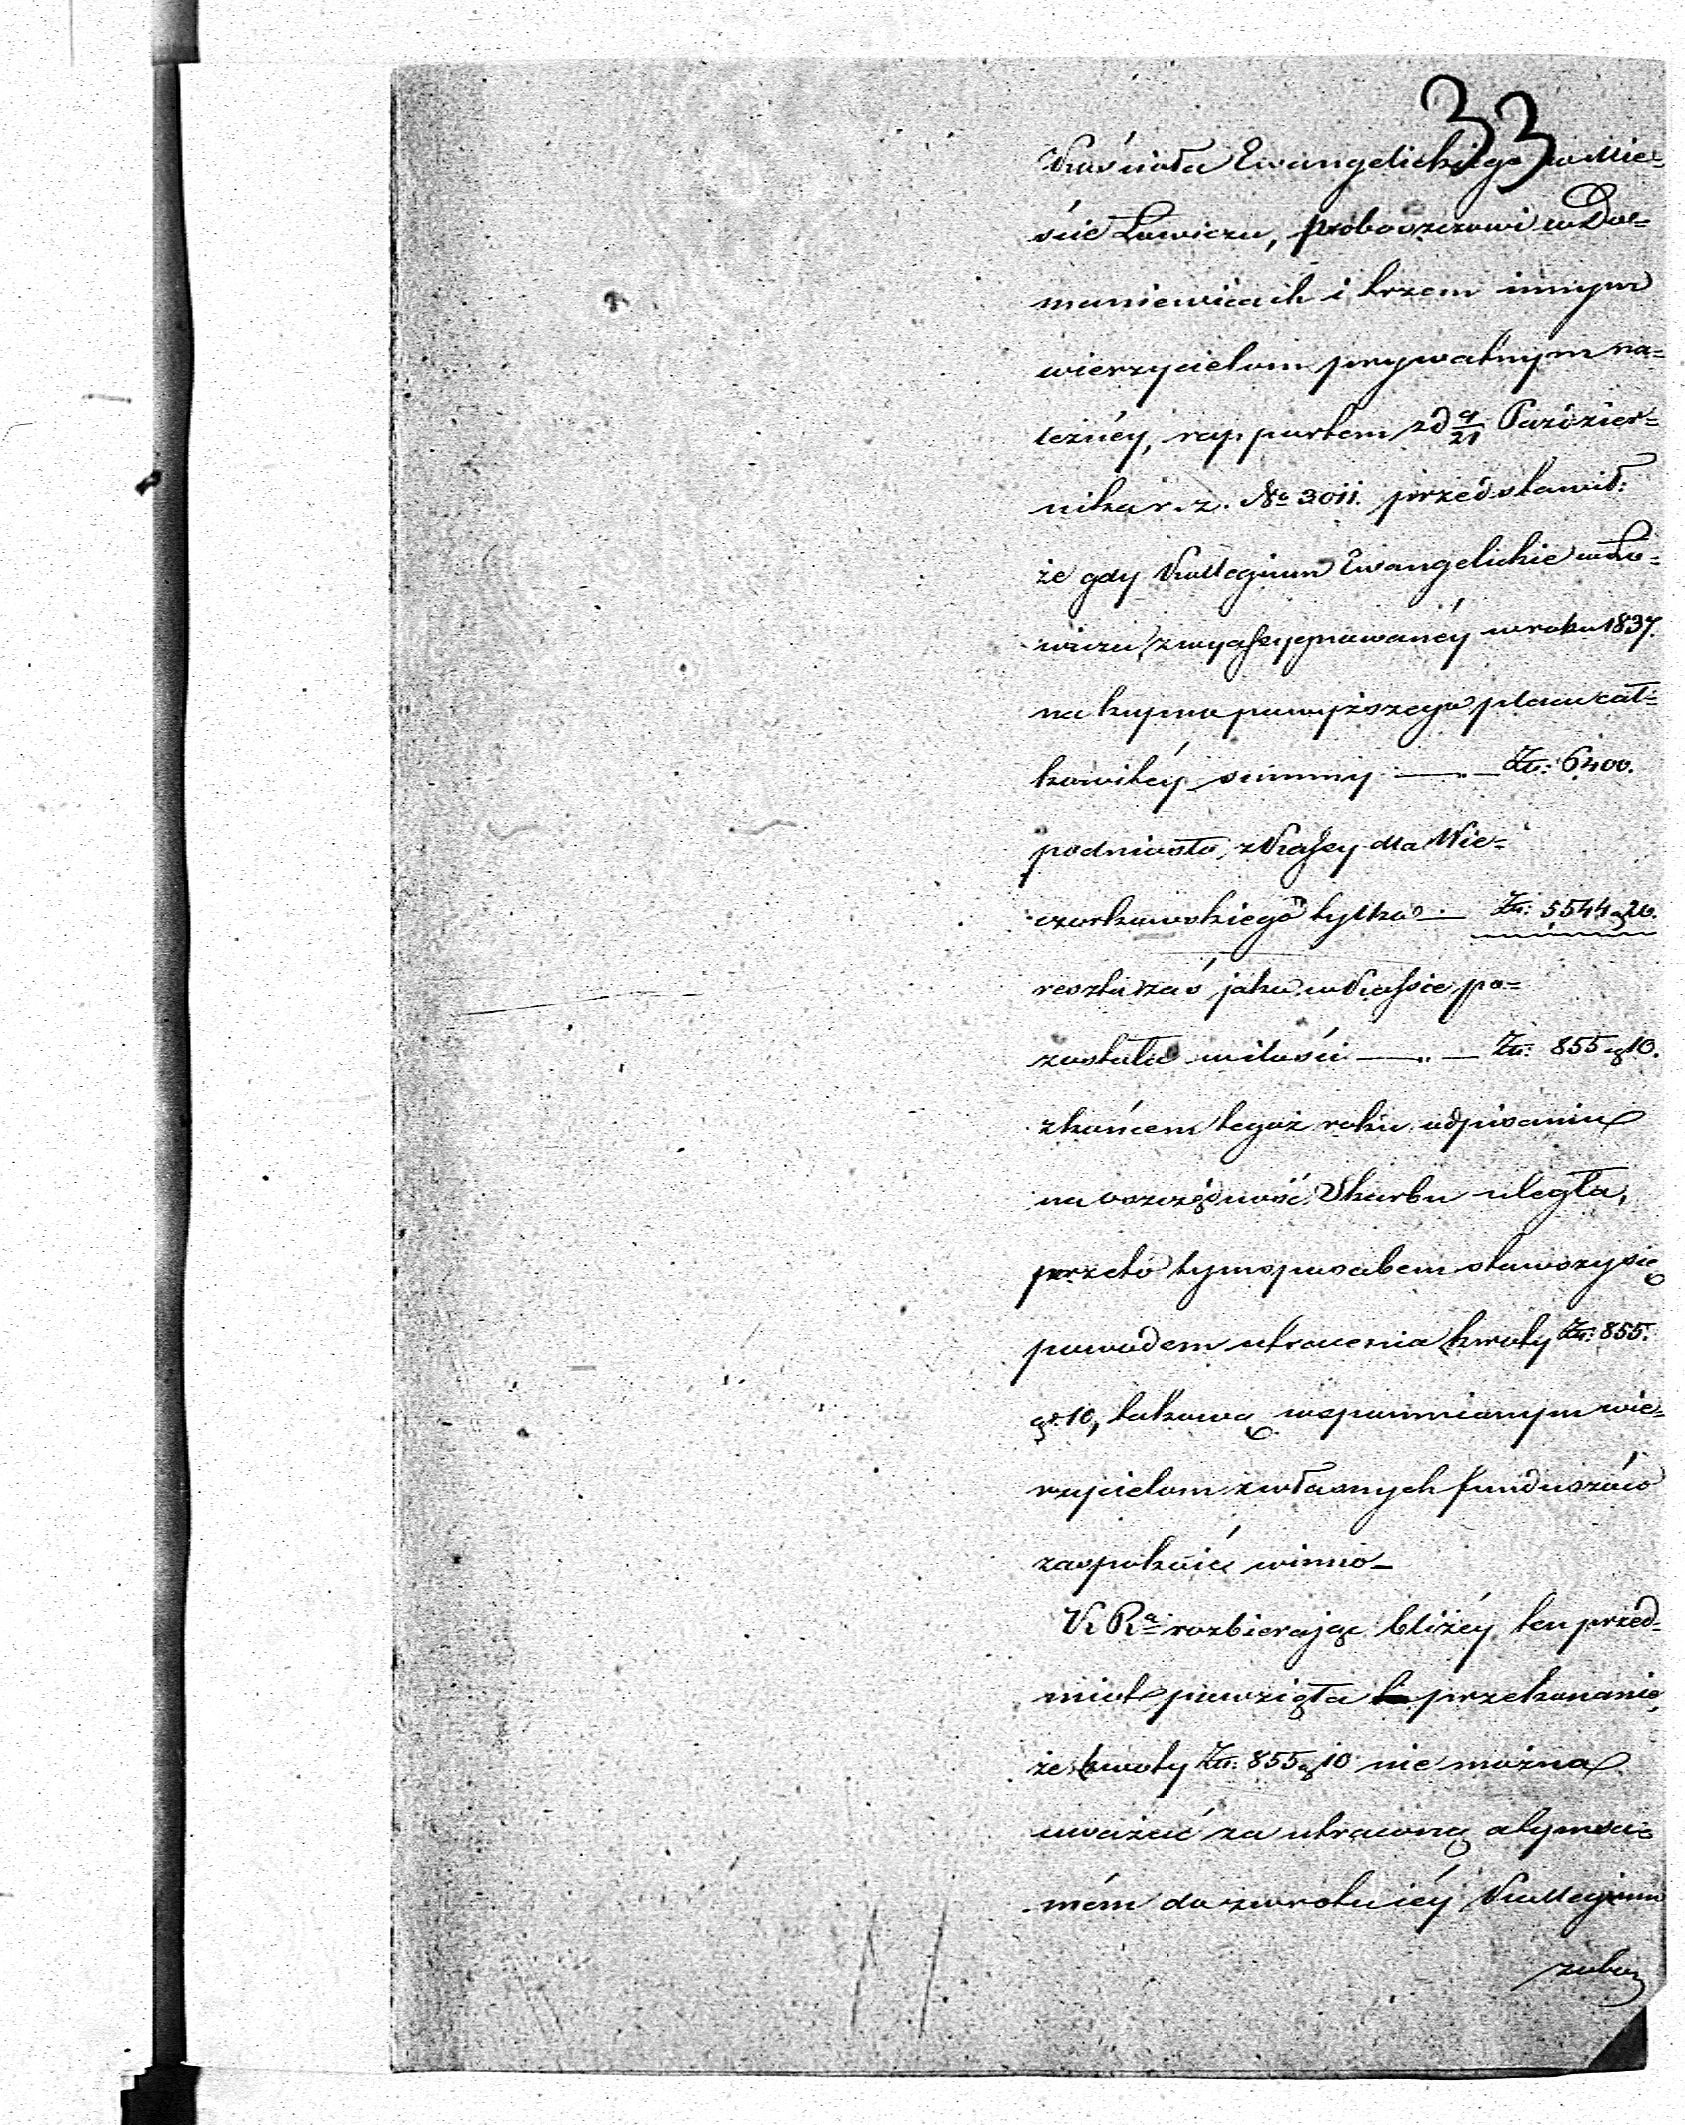 33
Kościoła Ewangelickiego w Mie=
ście Łowiczu, proboszczowi w Do=
maniewicach i trzem innym
wierzycielom prywatnym na=
leżnéy, rapportem z d 9/21 Paździer=
nika r. z. No 3011. przedstawił:
że gdy Kollegium Ewangelickie w Ło=
wiczu, z wyassygnowanéy w roku 1837.
na kupno powyższego placu cał=
kowitéy summy —— Zł: 6400.
podniosło, z Kassy dla Wie=
czorkowskiego tylko — Zł: 5544 g 20.
reszta zaś jako w Kassie po=
zostałe w ilości —— Zł: 855 g 10.
z końcem tegoż roku odpisaniu
na oszczędność Skarbu uległa,
przeto tym sposobem stawszy się
powodem utracenia kwoty Zł: 855.
gr 10, takową wspomnianym wie=
rzycielom z własnych funduszów
zaspokoić winno_
K Ra rozbierając bliżéy ten przed=
miot powzięła przekonanie,
że kwoty Zł: 855 g 10 nie można
uważać za utraconą a tym sa=
mém do zwrotu iéy Kollegium